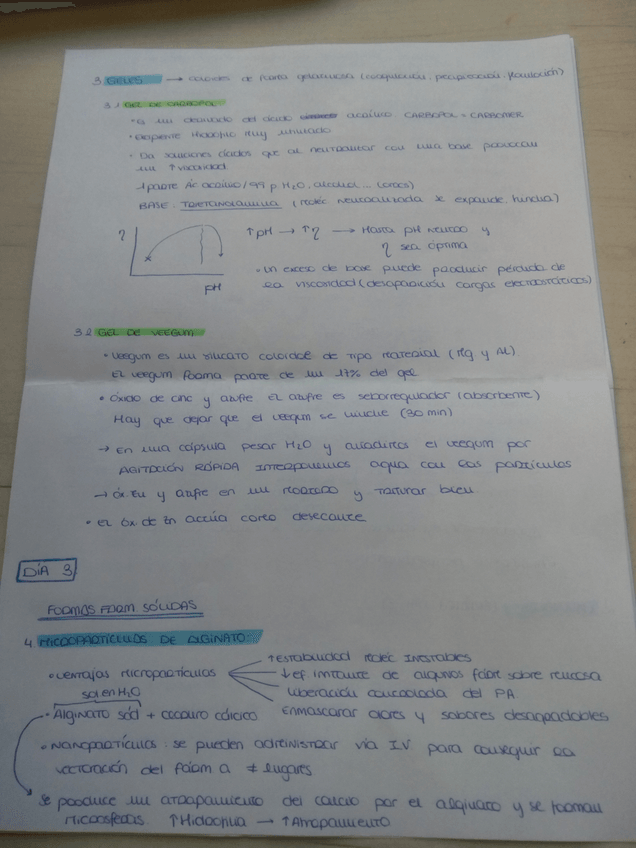 3 GELES → coloides de forma gelatinosa (coagulación, precipitación, floculación)
3.1 GEL DE CARBOPOL
• Es un derivado del ácido acrílico. CARBOPOL = CARBOMER
• Excipiente Hidrófilo Muy utilizado
• Da soluciones ácidas que al neutralizar con una base provocan
un ↑ viscosidad
1 parte Ác acrílico / 99 p. H2O, alcohol...
BASE: TRIETANOLAMINA (Moléc neutralizada se expande, hincha)
η
pH
↑ pH → ↑ η → Hasta pH neutro y
η sea óptima
• Un exceso de base puede producir pérdida de
la viscosidad (desaparición cargas electrostáticas)
3.2 GEL DE VEEGUM
• Veegum es un silicato coloidal de tipo material (Mg y Al)
El veegum forma parte de un 17% del gel
• Óxido de cinc y azufre El azufre es seborregulador (absorbente)
Hay que dejar que el veegum se hinche (30 min)
→ En una cápsula pesar H2O y añadimos el veegum por
AGITACIÓN RÁPIDA Interponemos agua con las partículas
→ óx. Zn y azufre en un mortero y triturar bien
• El óx. de Zn actúa como desecante
DÍA 3
FORMAS FARM SÓLIDAS
4 MICROPARTÍCULAS DE ALGINATO
↑ Estabilidad moléc Inestables
• Ventajas Micropartículas ↓ ef irritante de algunos fárm sobre mucosa
Liberación controlada del P.A.
sol en H2O
Enmascarar olores y sabores desagradables
• Alginato sód + cloruro cálcico
• Nanopartículas: se pueden administrar vía I.V para conseguir la
vectoración del fárm a ≠ lugares
Se produce un atrapamiento del calcio por el alginato y se forman
Microesferas. ↑ Hidrofilia → ↑ Atrapamiento